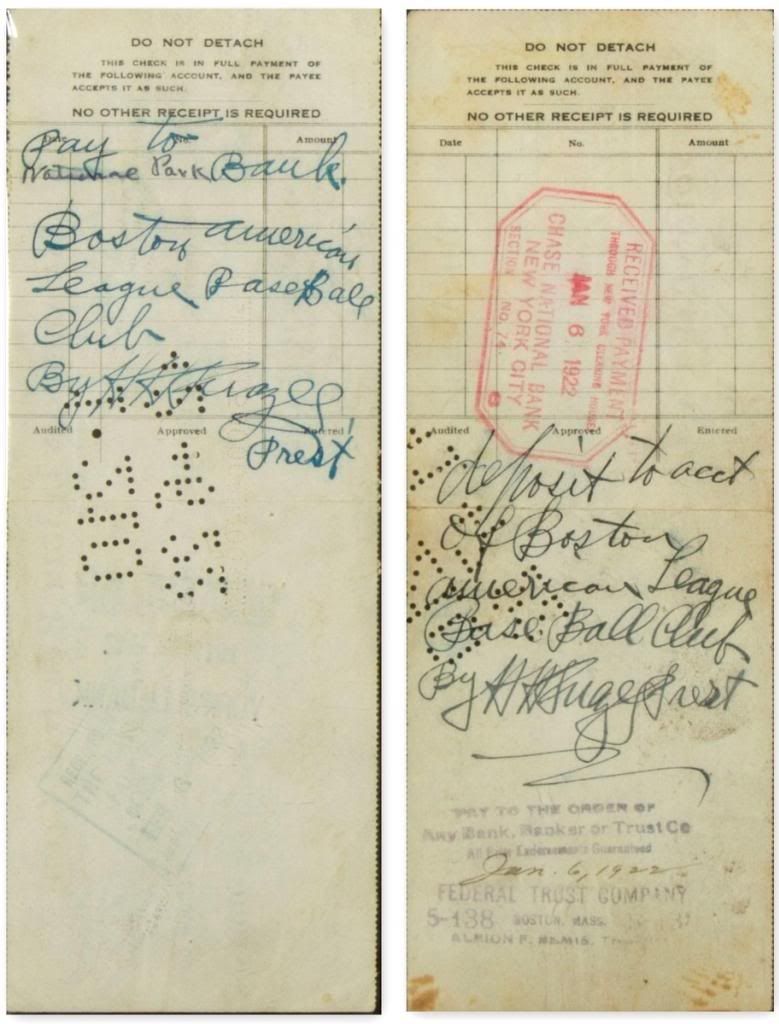 DO NOT DETACH
THIS CHECK IS IN FULL PAYMENT OF
THE FOLLOWING ACCOUNT, AND THE PAYEE
ACCEPTS IT AS SUCH.
NO OTHER RECEIPT IS REQUIRED
No. Amount
Pay to
National Park Bank.
Boston American
League Base Ball
Club
By H H Frazee
Prest
Audited Approved Entered
DO NOT DETACH
THIS CHECK IS IN FULL PAYMENT OF
THE FOLLOWING ACCOUNT, AND THE PAYEE
ACCEPTS IT AS SUCH.
NO OTHER RECEIPT IS REQUIRED
Date No. Amount
RECEIVED PAYMENT
THROUGH NEW YORK CLEARING HOUSE
JAN 6 1922
CHASE NATIONAL BANK
NEW YORK CITY
SECTION NO. 74
Audited Approved Entered
deposit to acct
Of Boston
American League
Base Ball Club
By H H Frazee Prest
PAY TO THE ORDER OF
Any Bank, Banker or Trust Co
All Prior Endorsements Guaranteed
Jan. 6, 1922
FEDERAL TRUST COMPANY
5-138 BOSTON, MASS.
ALBION F. BEMIS,